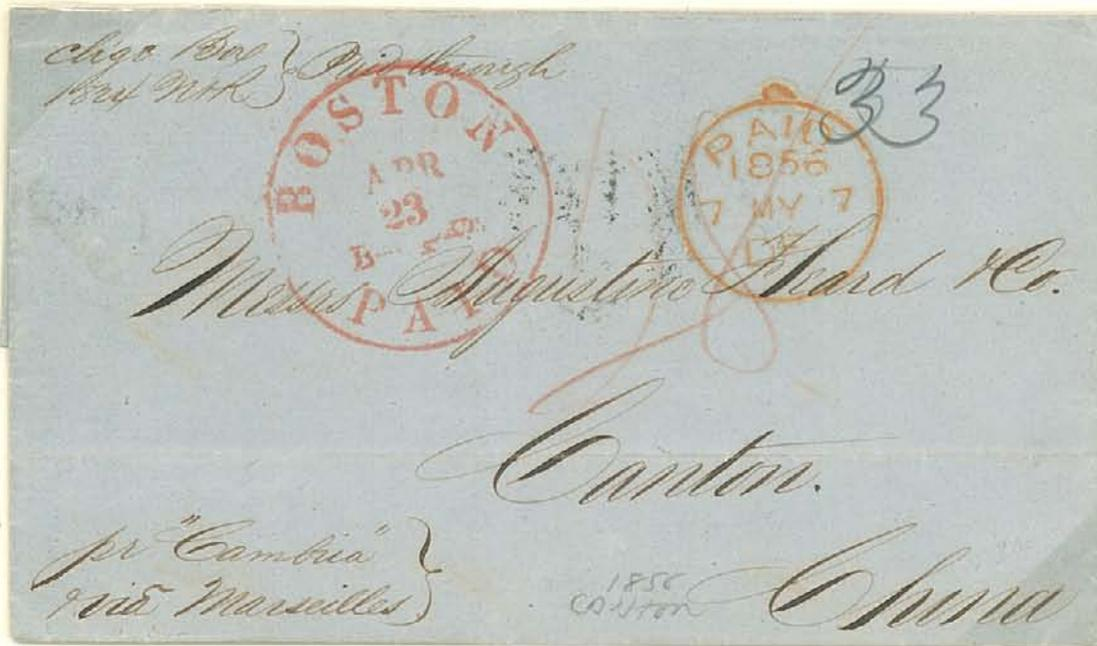 Paid through
BOSTON
APR
23
PAID
PAID
1856
7 MY 7
33
Messrs Augustine Heard & Co.
Canton.
China
pr "Cambria"
via Marseilles
1856
CANTON